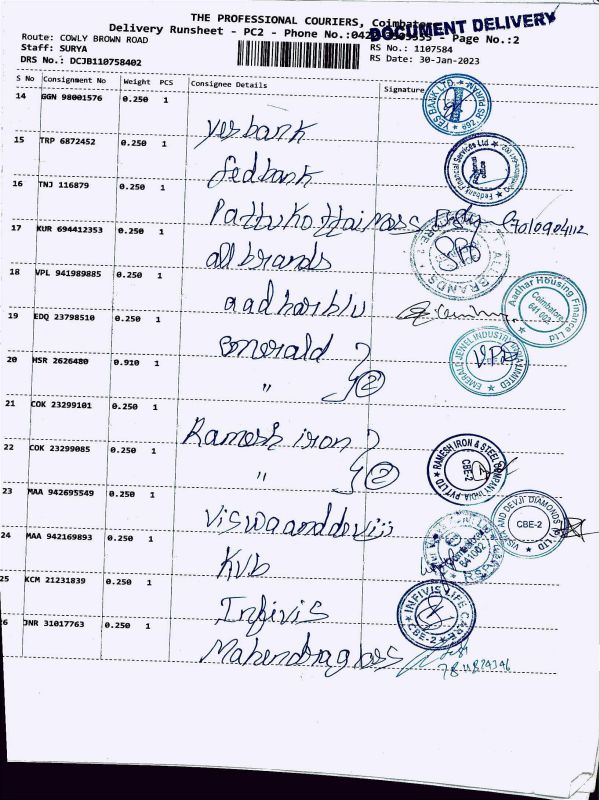 THE PROFESSIONAL COURIERS, Coimbatore
DOCUMENT DELIVERY
Delivery Runsheet - PC2 - Phone No.: - Page No.:2
Route: COWLY BROWN ROAD
RS No.: 1107584
Staff: SURYA
RS Date: 30-Jan-2023
DRS No.: DCJB110758402
S No Consignment No Weight PCS Consignee Details Signature
14 GGN 98001576 0.250 1
yesbank
YES BANK LTD.
15 TRP 6872452 0.250 1
fedbank
Fedbank Financial Services Ltd
16 TNJ 116879 0.250 1
Pattukottai
17 KUR 694412353 0.250 1
all brands
ALL BRANDS
18 VPL 941989885 0.250 1
aadharblu
Aadhar Housing Finance Ltd
Coimbatore
641 002
19 EDQ 23798510 0.250 1
Emerald
EMERALD JEWEL INDUSTRY INDIA LIMITED
20 HSR 2626480 0.910 1
" 2
21 COK 23299101 0.250 1
Ramesh iron
RAMESH IRON & STEEL COMPANY INDIA PVT LTD
CBE-2
22 COK 23299085 0.250 1
" 2
23 MAA 942695549 0.250 1
Viswaanddevji
VISWA AND DEVJI DIAMONDS PVT LTD
CBE-2
24 MAA 942169893 0.250 1
KVB
641002
25 KCM 21231839 0.250 1
Infivis
INFIVIS LIFE CARE
CBE-2
26 JNR 31017763 0.250 1